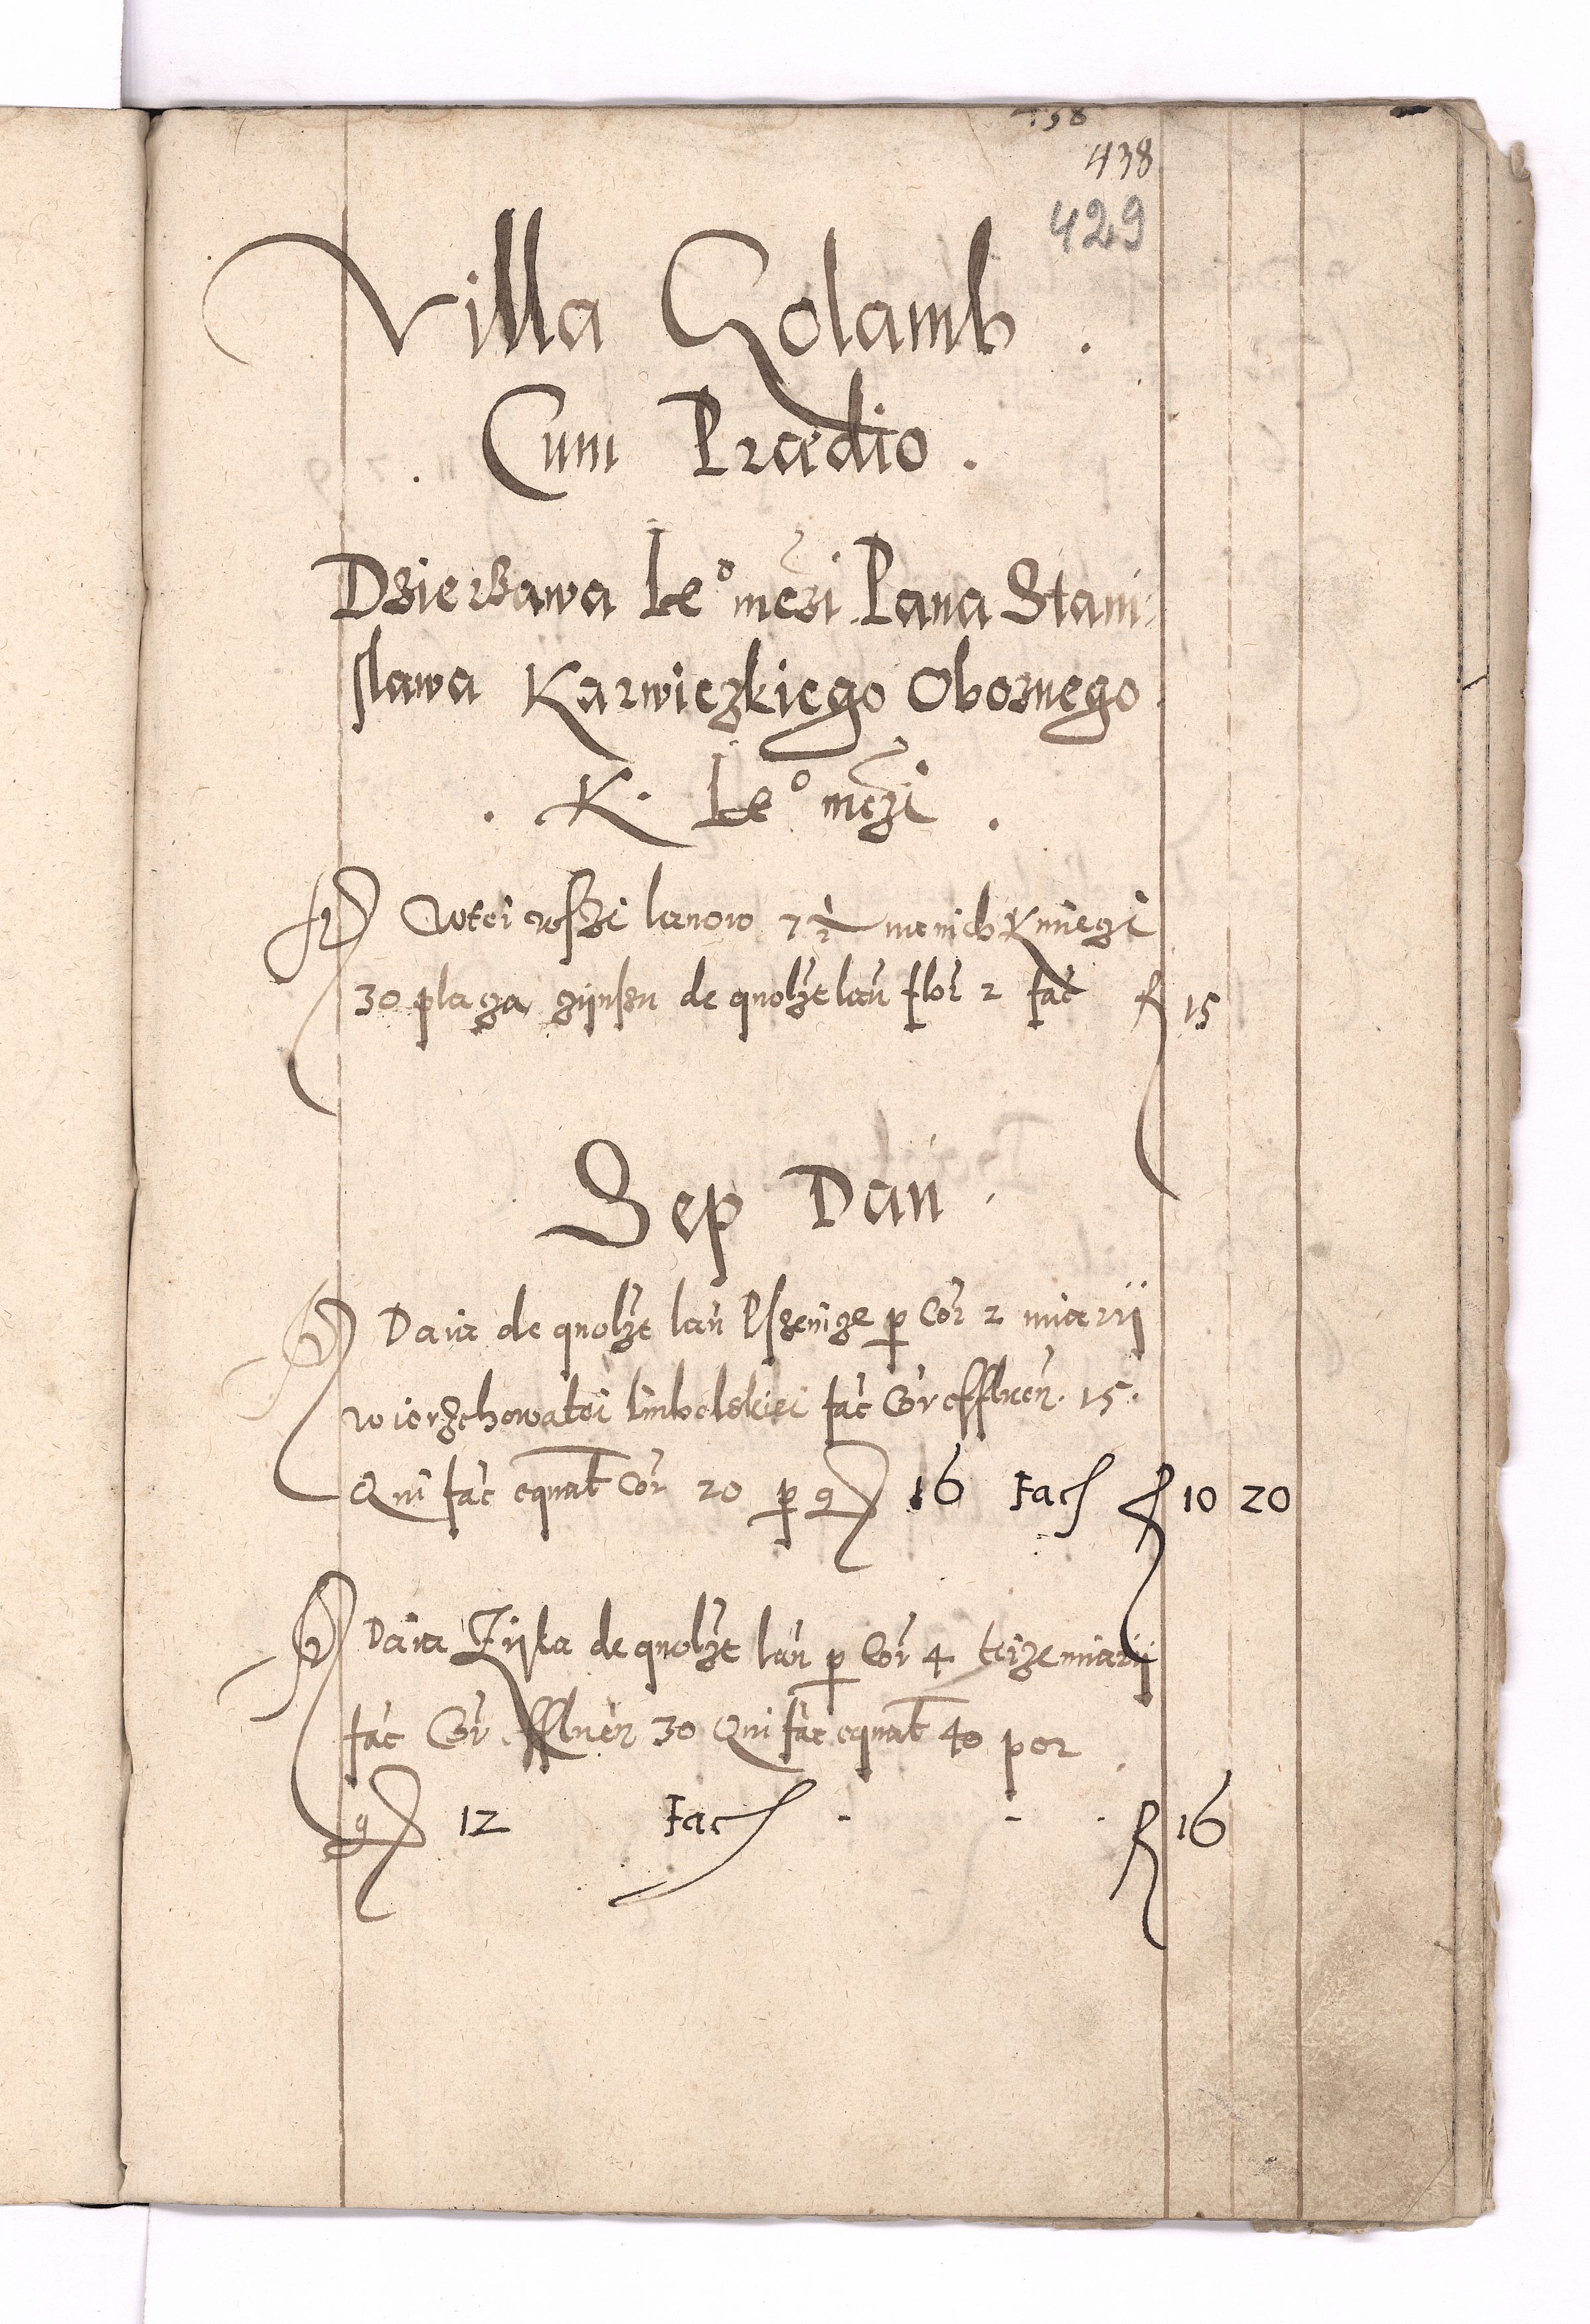 438
438
429
Villa Golamb .
Cum Prædio .
Dzierzawa Je° mczi Pana Stani:
slawa Karwiczkiego Obornego
. K. Je° mczi .
W tei wszi lanow 7 1/2 na nich Kmiezi
30 placza czijnszu de quolzt lan flor 2 fac f 15
Sep Dan
Daia de quolzt lan Pszenize p Cor 2 miarij
wierzchowatei Lubelskiei fac Cor effluen. 15.
Qui fac equat Cor 20 p g 16 Fac f 10 20
Daia Zijta de quolzt lan p Cor 4 teize miarij
fac Cor effluen 30 Qui fac equat 40 per
g 12 Fac - - . f 16